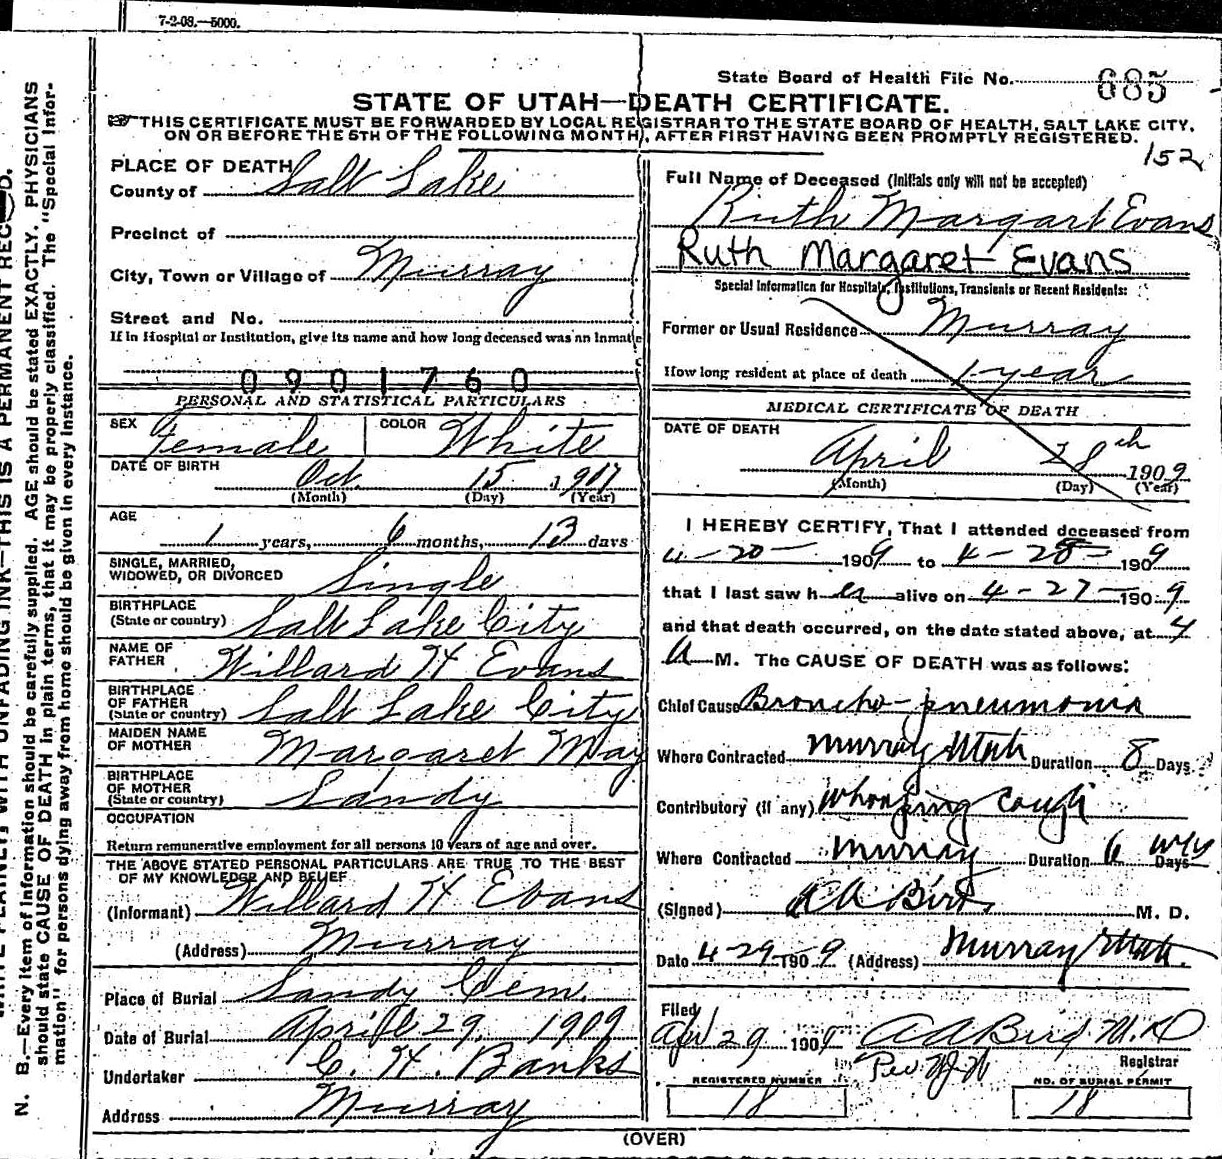 7-2-08.—5000.
State Board of Health File No. 685
STATE OF UTAH—DEATH CERTIFICATE.
THIS CERTIFICATE MUST BE FORWARDED BY LOCAL REGISTRAR TO THE STATE BOARD OF HEALTH, SALT LAKE CITY,
ON OR BEFORE THE 5TH OF THE FOLLOWING MONTH, AFTER FIRST HAVING BEEN PROMPTLY REGISTERED.
152
PLACE OF DEATH
County of Salt Lake
Precinct of
City, Town or Village of Murray
Street and No.
If in Hospital or Institution, give its name and how long deceased was an inmate
0901760
PERSONAL AND STATISTICAL PARTICULARS
SEX Female COLOR White
DATE OF BIRTH Oct. 15 1907
(Month) (Day) (Year)
AGE
1 years, 6 months, 13 days
SINGLE, MARRIED,
WIDOWED, OR DIVORCED Single
BIRTHPLACE
(State or country) Salt Lake City
NAME OF
FATHER Willard H Evans
BIRTHPLACE
OF FATHER
(State or country) Salt Lake City
MAIDEN NAME
OF MOTHER Margaret May
BIRTHPLACE
OF MOTHER
(State or country) Sandy
OCCUPATION
Return remunerative employment for all persons 10 years of age and over.
THE ABOVE STATED PERSONAL PARTICULARS ARE TRUE TO THE BEST
OF MY KNOWLEDGE AND BELIEF
(Informant) Willard H Evans
(Address) Murray
Place of Burial Sandy Cem.
Date of Burial April 29, 1909
Undertaker C. H. Banks
Address Murray
Full Name of Deceased (Initials only will not be accepted)
Ruth Margart Evans
Ruth Margaret Evans
Special Information for Hospitals, Institutions, Transients or Recent Residents:
Former or Usual Residence Murray
How long resident at place of death 1 year
MEDICAL CERTIFICATE OF DEATH
DATE OF DEATH
April 28th 1909
(Month) (Day) (Year)
I HEREBY CERTIFY, That I attended deceased from
4-20- 1909 to 4-28- 1909
that I last saw her alive on 4-27- 1909
and that death occurred, on the date stated above, at 4
A M. The CAUSE OF DEATH was as follows:
Chief Cause Broncho-pneumonia
Where Contracted Murray Utah Duration 8 Days
Contributory (if any) Whooping Cough
Where Contracted Murray Duration 6 wks Days
(Signed) M. D.
Date 4-29- 1909 (Address) Murray Utah.
Filed
Apr 29 1909 A A Bird M.D
Registrar
REGISTERED NUMBER
18
NO. OF BURIAL PERMIT
18
(OVER)
N. B.—Every item of information should be carefully supplied. AGE should be stated EXACTLY. PHYSICIANS
should state CAUSE OF DEATH in plain terms, that it may be properly classified. The "Special Infor-
mation" for persons dying away from home should be given in every instance.
WITH UNFADING INK—THIS IS A PERMANENT